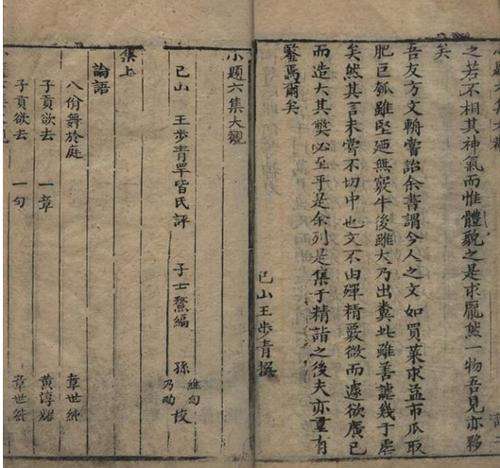 之若不相其神氣而惟體貌之是求龐然一物吾見亦夥
矣
吾友方文輈嘗詒余書謂今人之文如買菜求益市瓜取
肥巨瓠雖堅廼無竅牛後雖大乃出糞此雖善謔幾于虐
矣然其言未嘗不切中也文不由殫精覈微而遽欲廣己
而造大其弊必至乎是余列是集于精詣之後夫亦重有
鑒焉爾矣
己山王步青撰
小題六集大觀
己山 王步青罕皆氏評 子士鰲編 孫 維甸 乃昀 校
集上
論語
八佾舞於庭 章世純
子貢欲去 一章 黃淳耀
子貢欲去 一句 章世純